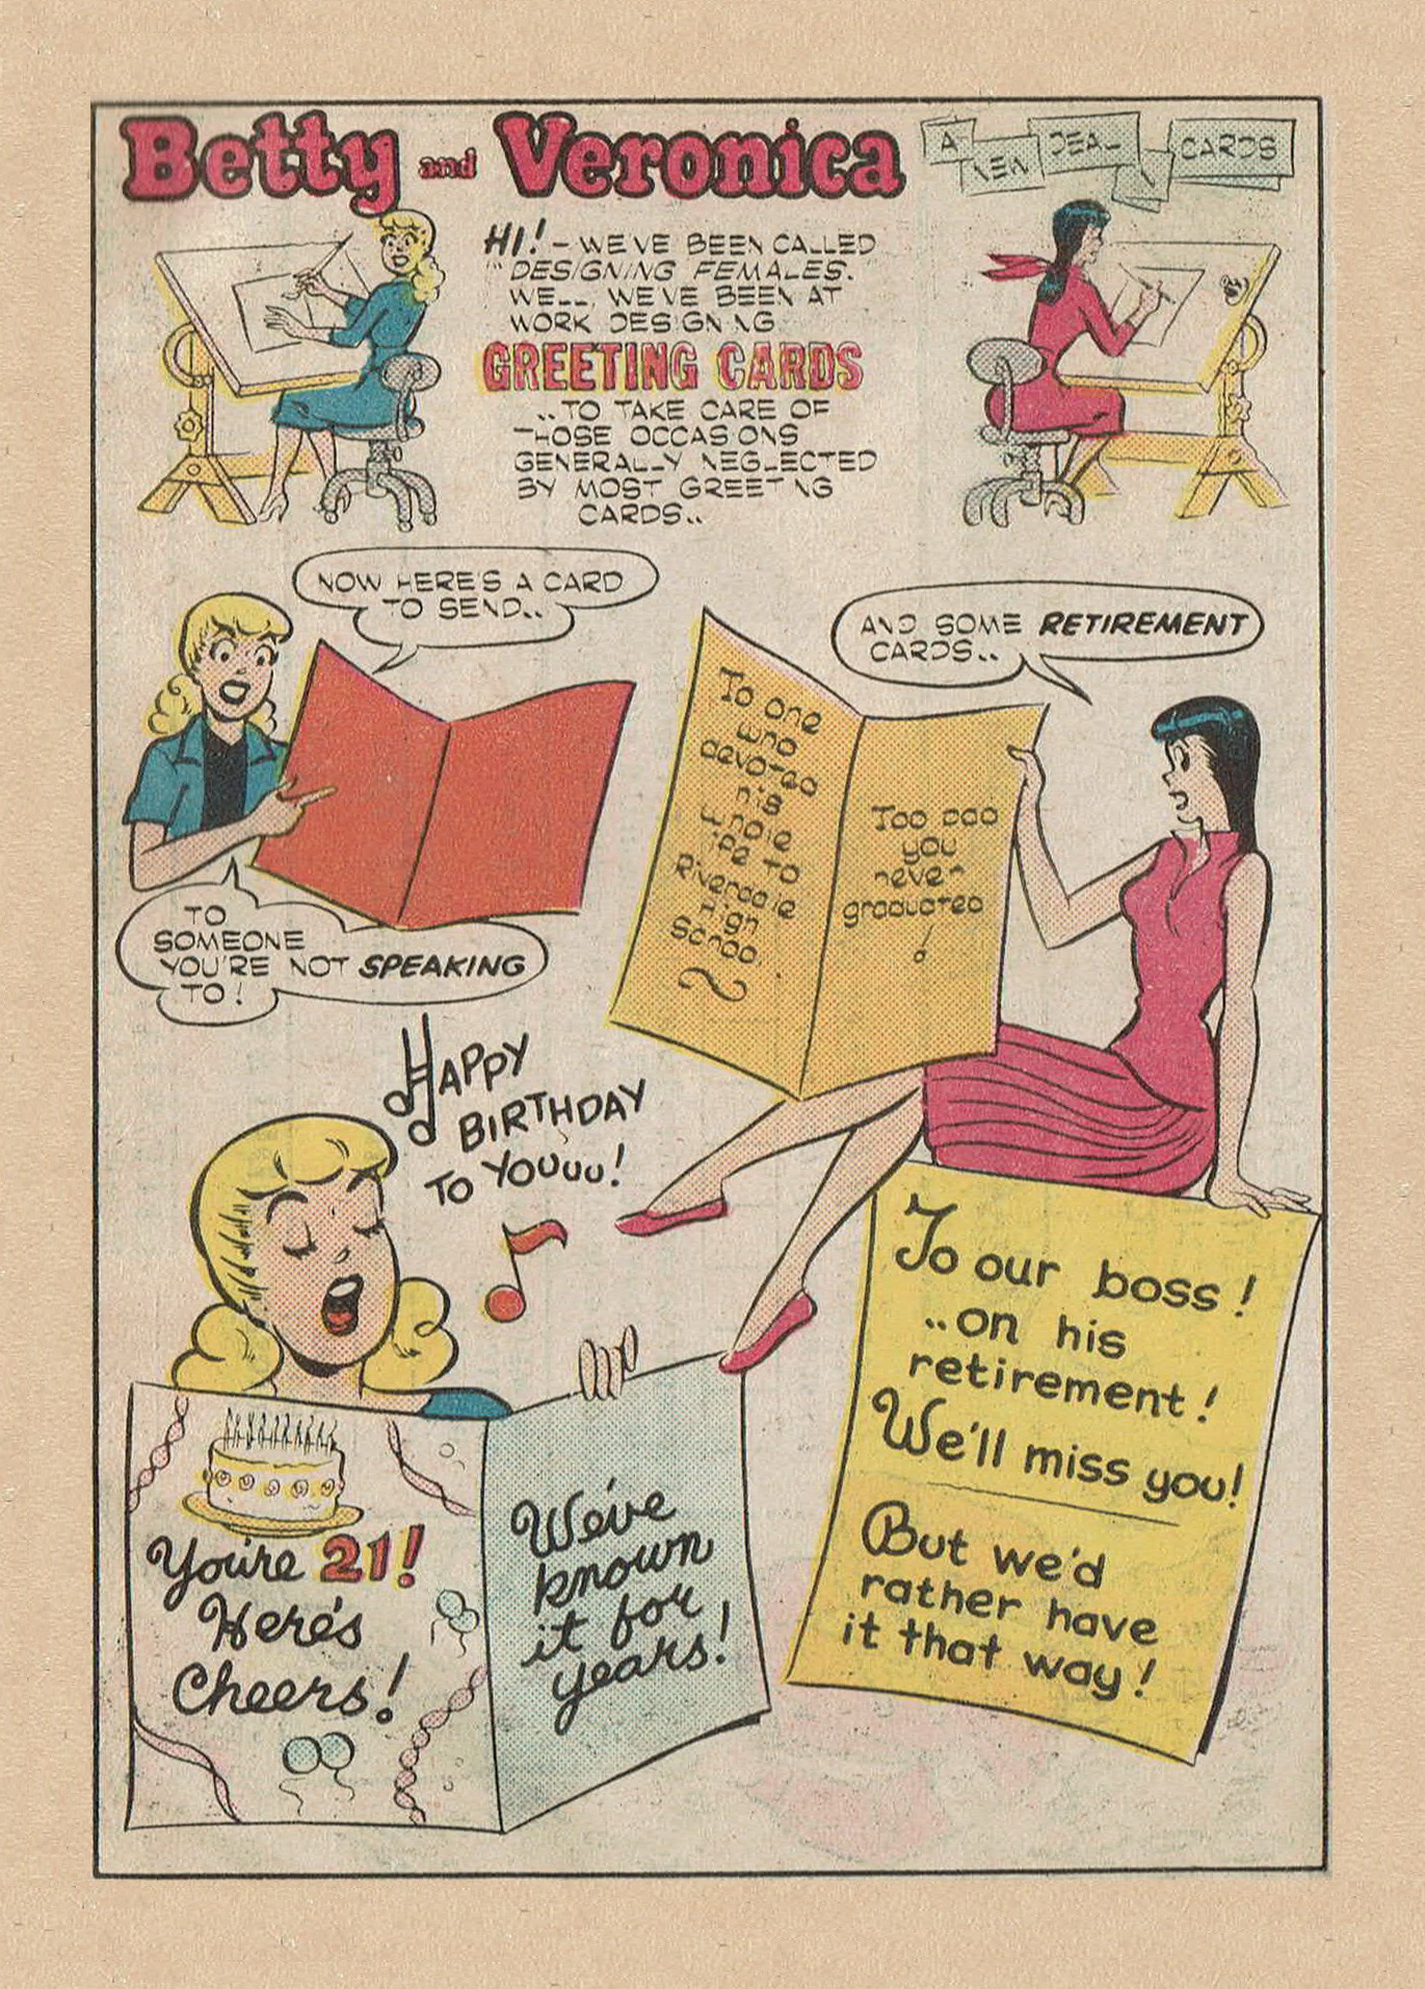 Betty and Veronica
A NEW DEAL IN CARDS
HI! - WE'VE BEEN CALLED
"DESIGNING FEMALES."
WELL, WE'VE BEEN AT
WORK DESIGNING
GREETING CARDS
..TO TAKE CARE OF
THOSE OCCASIONS
GENERALLY NEGLECTED
BY MOST GREETING
CARDS..
NOW HERE'S A CARD
TO SEND..
TO
SOMEONE
YOU'RE NOT SPEAKING
TO!
AND SOME RETIREMENT
CARDS..
To one
who
devoted
his
whole
life to
Riverdale
High
School
Too bad
you
never
graduated
!
HAPPY
BIRTHDAY
TO YOUUU!
You're 21!
Here's
Cheers!
We've
known
it for
years!
To our boss!
..on his
retirement!
We'll miss you!
But we'd
rather have
it that way!